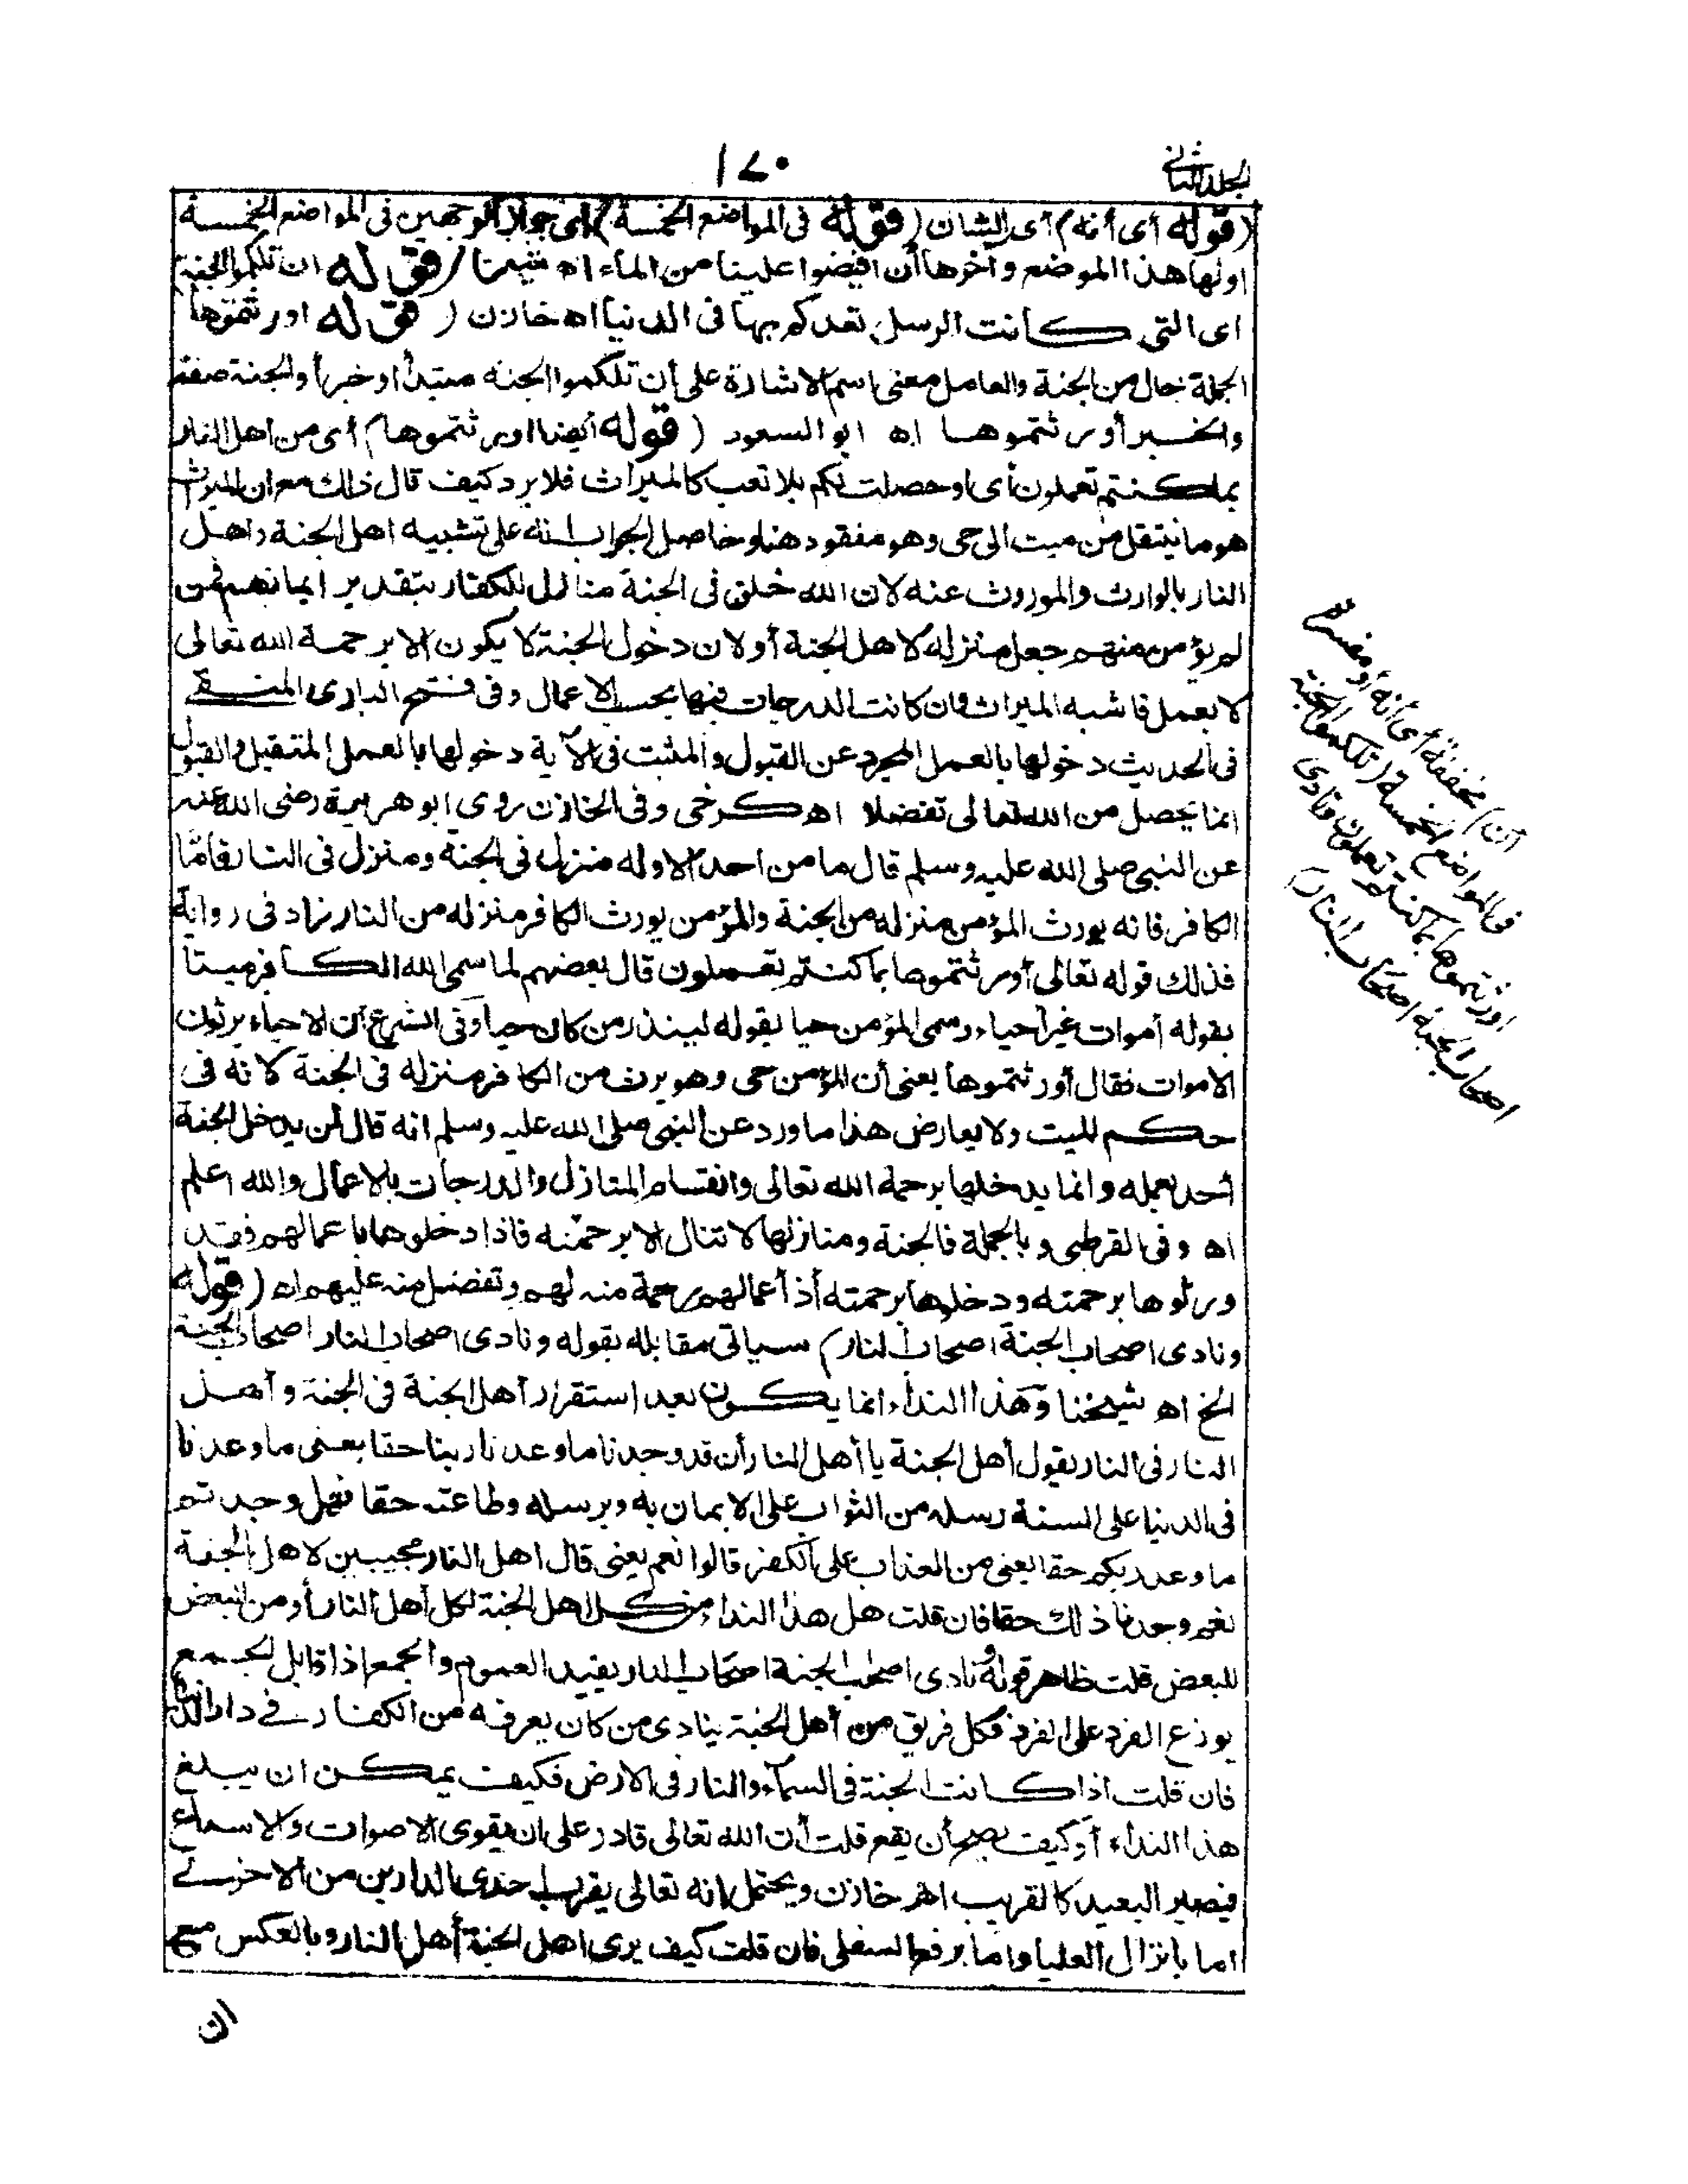 الجلد الثانى
١٧٠
(قوله أى أنه) أى الشان (قوله فى المواضع الخمسة) أى جواز الوجهين فى المواضع الخمسة
اولها هذا الموضع وآخرها أن افيضوا علينا من الماء اه شيخنا (قوله ان تلكمو الجنة)
اى التى كانت الرسل تعدكم بها فى الدنيا اه خازن (قوله اورثتموها)
الجملة حال من الجنة والعامل معنى اسم الاشارة على أن تلكموا الجنة مبتدأ وخبرا والجنة صفة
والخبر أورثتموها اه ابو السعود (قوله أيضا اورثتموها) أى من اهل النار
بما كنتم تعملون أى وحصلت لكم بلا تعب كالميراث فلا يرد كيف قال ذلك مع ان الميراث
هو ما ينتقل من ميت الى حى وهو مفقود هنا وحاصل الجواب انه على تشبيه اهل الجنة واهل
النار بالوارث والموروث عنه لان الله خلق فى الجنة منازل للكفار بتقدير ايمانهم فمن
لم يؤمن منهم جعل منزله لاهل الجنة أو لان دخول الجنة لا يكون الا برحمة الله تعالى
لا بعمل فاشبه الميراث وان كانت الدرجات فيها بحسب الاعمال وفى فتح البارى المنفى
فى الحديث دخولها بالعمل المجرد عن القبول والمثبت فى الآية دخولها بالعمل المتقبل والقبول
انما يحصل من الله تعالى تفضلا اه كرخى وفى الخازن روى ابو هريرة رضى الله عنه
عن النبى صلى الله عليه وسلم قال ما من احد الا وله منزل فى الجنة ومنزل فى النار فاما
الكافر فانه يورث المؤمن منزله من الجنة والمؤمن يورث الكافر منزله من النار زاد فى رواية
فذلك قوله تعالى أورثتموها بما كنتم تعملون قال بعضهم لما سمى الله الكافر ميتا
بقوله أموات غير أحياء وسمى المؤمن حيا بقوله لينذر من كان حيا وفى الشرع أن الاحياء يرثون
الاموات فقال أورثتموها يعنى أن المؤمن حى وهو يرث من الكافر منزله فى الجنة لانه فى
حكم الميت ولا يعارض هذا ما ورد عن النبى صلى الله عليه وسلم انه قال لن يدخل الجنة
أحد بعمله وانما يدخلها برحمة الله تعالى وانقسام المنازل والدرجات بالاعمال والله اعلم
اه وفى القرطبى وبالجملة فالجنة ومنازلها لا تنال الا برحمته فاذا دخلوها باعمالهم فقد
ورثوها برحمته ودخلوها برحمته أذ أعمالهم رحمة منه لهم وتفضل منه عليهم اه (قوله
ونادى اصحاب الجنة اصحاب النار) سياتى مقابله بقوله ونادى اصحاب النار اصحاب الجنة
الخ اه شيخنا وهذا النداء انما يكون بعد استقرار أهل الجنة فى الجنة وأهل
النار فى النار يقول أهل الجنة يا أهل النار أن قد وجدنا ما وعدنا ربنا حقا يعنى ما وعدنا
فى الدنيا على السنة رسله من الثواب على الايمان به وبرسله وطاعته حقا فهل وجدتم
ما وعد ربكم حقا يعنى من العذاب على الكفر قالوا نعم يعنى قال اهل النار مجيبين لاهل الجنة
نعم وجدنا ذلك حقا فان قلت هل هذا النداء من كل اهل الجنة لكل أهل النار أو من البعض
للبعض قلت ظاهر قوله ونادى اصحاب الجنة اصحاب النار يفيد العموم والجمع اذا قابل الجمع
يوزع الفرد على الفرد فكل فريق من أهل الجنة ينادى من كان يعرفه من الكفار فى دار الدنيا
فان قلت اذا كانت الجنة فى السماء والنار فى الارض فكيف يمكن ان يبلغ
هذا النداء أو كيف يصح أن يقع قلت أن الله تعالى قادر على ان يقوى الاصوات والاسماع
فيصير البعيد كالقريب اه خازن ويحتمل انه تعالى يقرب احدى الدارين من الاخرى
اما بانزال العليا واما برفع السفلى فان قلت كيف يرى اهل الجنة أهل النار وبالعكس مع
ان
أن) مخففة أى أنه أو مفسرة
فى المواضع الخمسة (تلكمو الجنة
اورثتموها بما كنتم تعملون ونادى
اصحاب الجنة اصحاب النار)